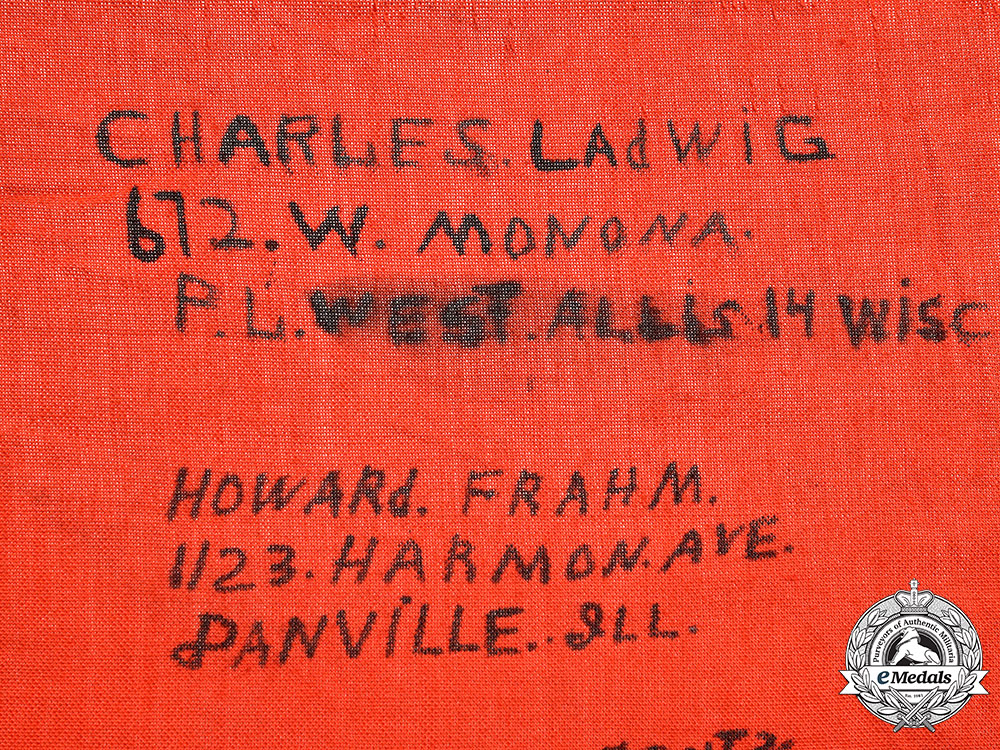 CHARLES. LAdWiG
672. W. MONONA.
P.L. WEST. ALLiS. 14 WiSC
HOWARd. FRAHM.
1123. HARMON. AVE.
DANViLLE. ILL.
Purveyors of Authentic Militaria
eMedals